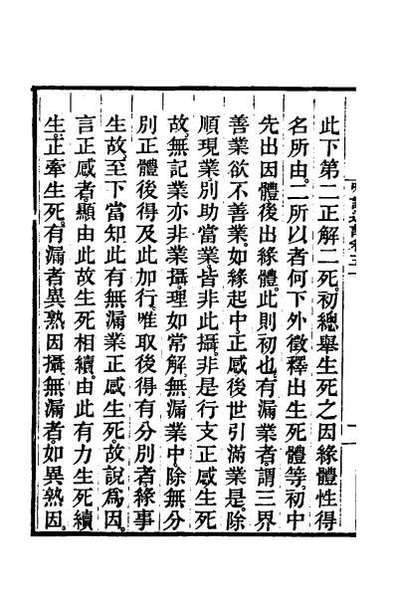 此下第二正解二死。初總舉生死之因緣體性得
名所由。二所以者何下外徵釋出生死體等。初中
先出因體後出緣體。此則初也。有漏業者。謂三界
善業欲不善業。如緣起中。正感後世引滿業是。除
順現業。別助當業皆非此攝。非是行支正感生死
故。無記業亦非業攝。理如常解。無漏業中。除無分
別正體後得及此加行唯取後得有分別者。緣事
生故。至下當知此有無漏業正感生死。故說爲因。
言正感者。顯由此故生死相續。由此有力生死續
生。正牽生死。有漏者異熟因攝。無漏者。如異熟因。